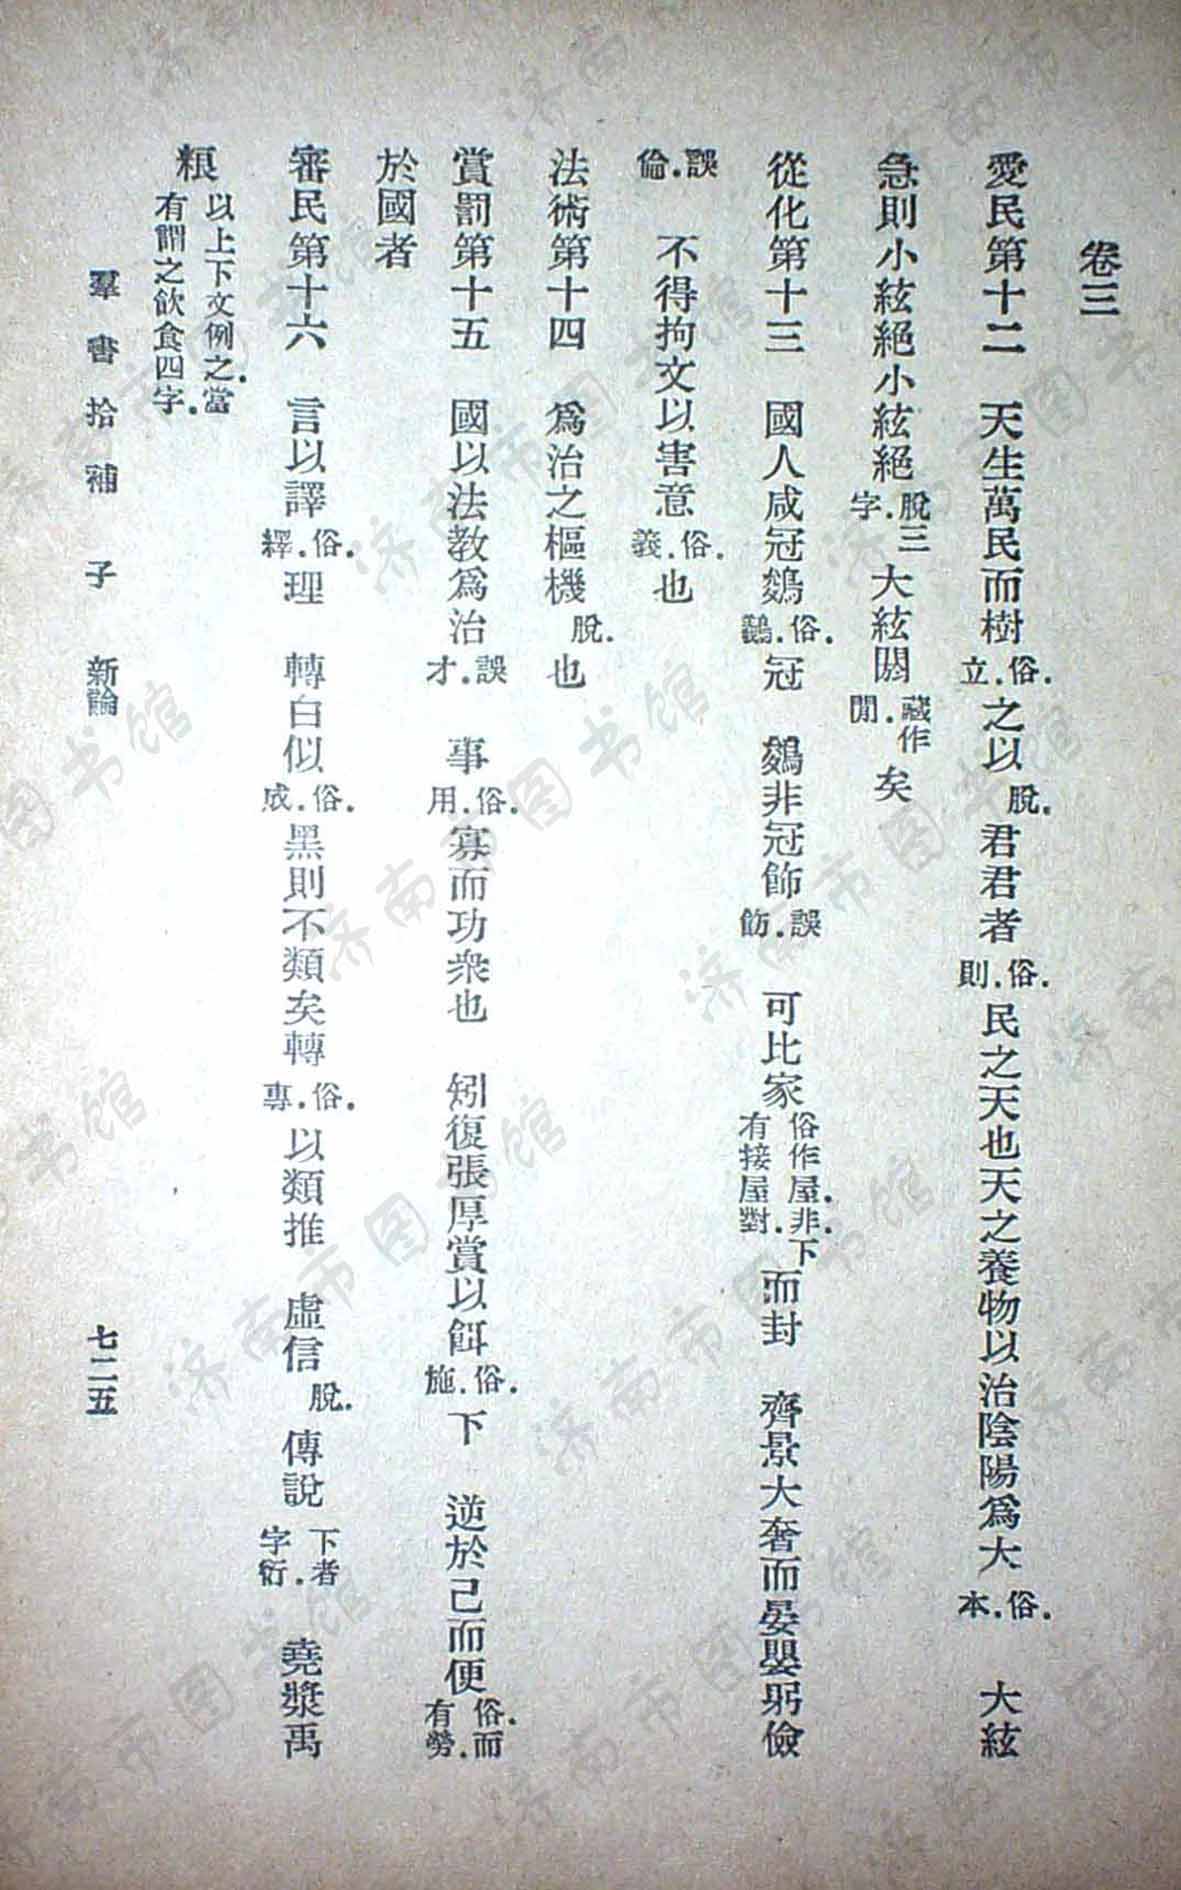 卷三
愛民第十二　天生萬民而樹俗.立.之以脫.君君者俗.則.民之天也天之養物以治陰陽爲大俗.本.　大絃
急則小絃絕小絃絕脫三字.大絃閎藏作閒.矣
從化第十三　國人咸冠鵕俗.鷊.冠　鵕非冠飾誤飭.　可比家俗作屋.非.下有接屋對.而封　齊景大奢而晏嬰躬儉
誤倫.　不得拘文以害意俗.義.也
法術第十四　爲治之樞機脫.也
賞罰第十五　國以法教爲治誤才.　事俗.用.寡而功衆也　矧復張厚賞以餌俗.施.下　逆於己而便俗.而有勞.
於國者
審民第十六　言以譯俗.繹.理　轉白似俗.成.黑則不類矣轉俗.專.以類推　虛信脫.傳說下者字衍.　堯漿禹
粻以上下文例之.當有謂之飲食四字.
羣書拾補　子　新論　七二五
济南市图书馆